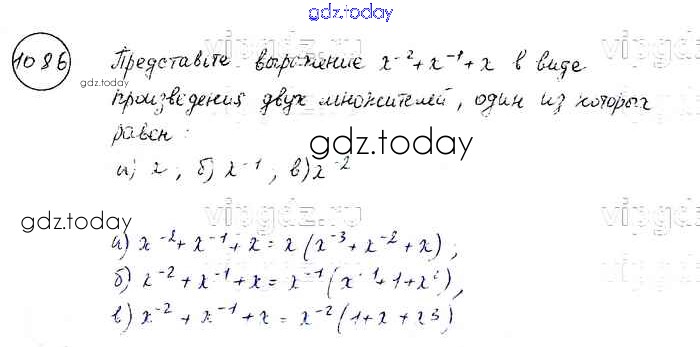 gdz.today
1086
Представьте выражение x⁻²+x⁻¹+x в виде
gdz.today
произведения двух множителей, один из которых
равен:
gdz.today
а) x, б) x⁻¹, в) x⁻²
gdz.today
vipgdz.ru
vipgdz
а) x⁻²+x⁻¹+x = x(x⁻³+x⁻²+x);
б) x⁻²+x⁻¹+x = x⁻¹(x⁻¹+1+x²),
в) x⁻²+x⁻¹+x = x⁻²(1+x+x3)
gdz.today